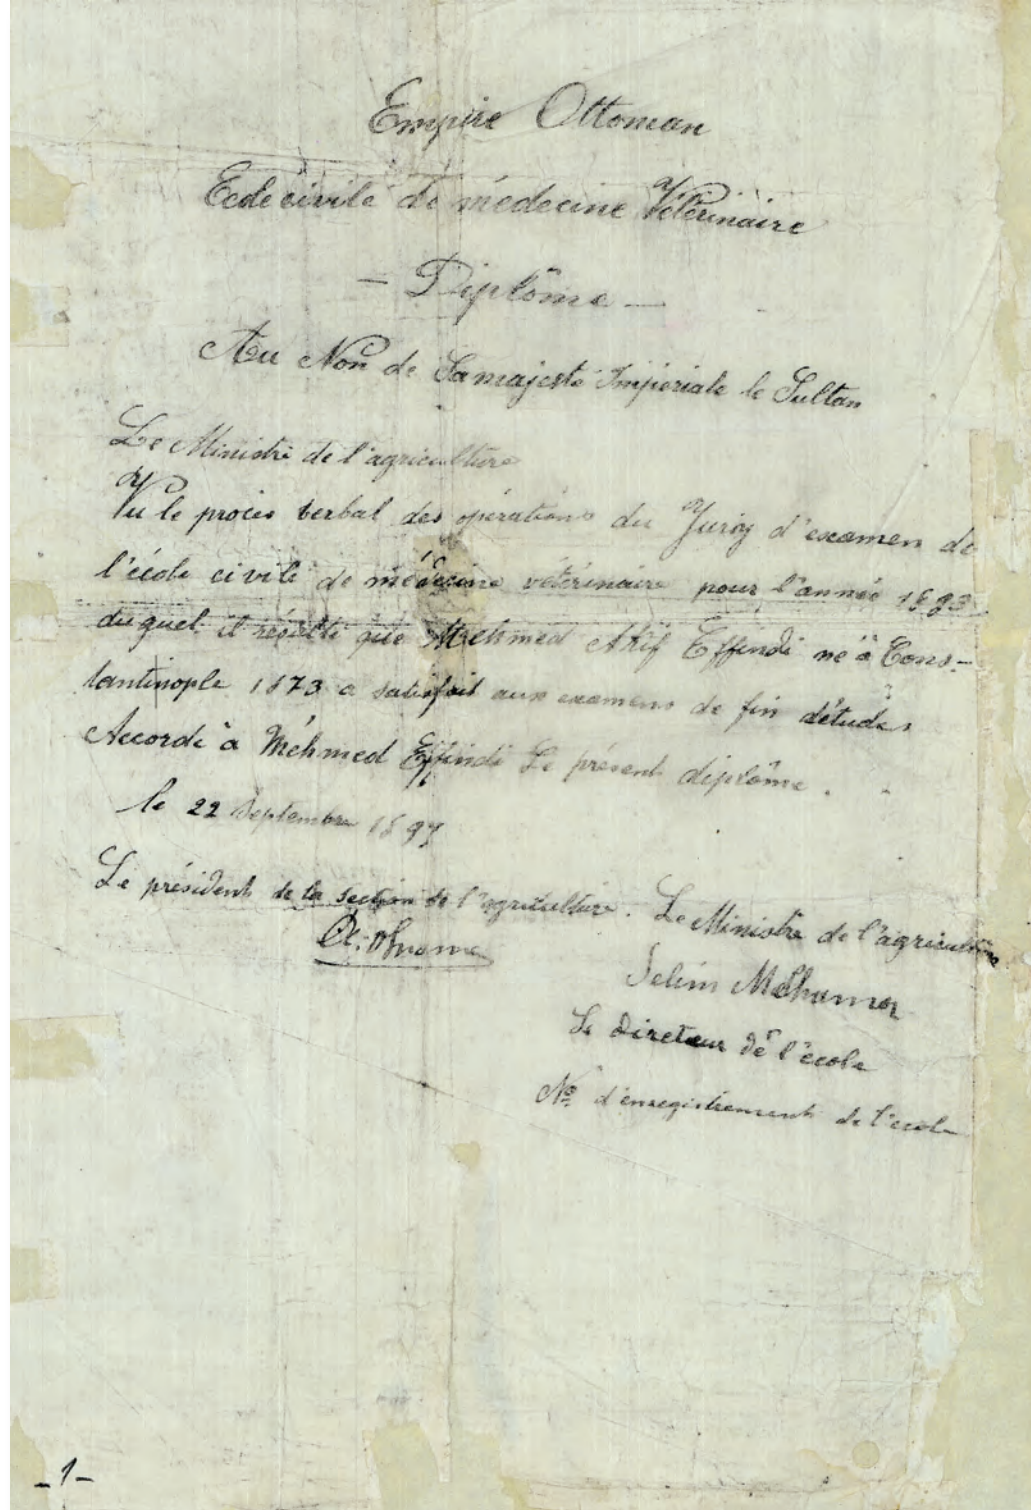 Empire Ottoman
Ecole civile de médecine Vétérinaire
- Diplôme -
Au Nom de Sa majesté Impériale le Sultan
Le Ministre de l'agriculture
Vu le procés verbal des opérations du Jury d'examen de
l'école civile de médecine vétérinaire pour l'année 1893
duquel il résulte que Mehmed Akif Effendi né à Cons-
tantinople 1873 a satisfait aux examens de fin d'études
Accorde à Méhmed Effendi Le présent diplôme.
le 22 Septembre 1897
Le président de la section de l'agriculture. Le Ministre de l'agriculture
Selim Melhamer
Le Direteur de l'école
No d'enregistrement de l'école
-1-